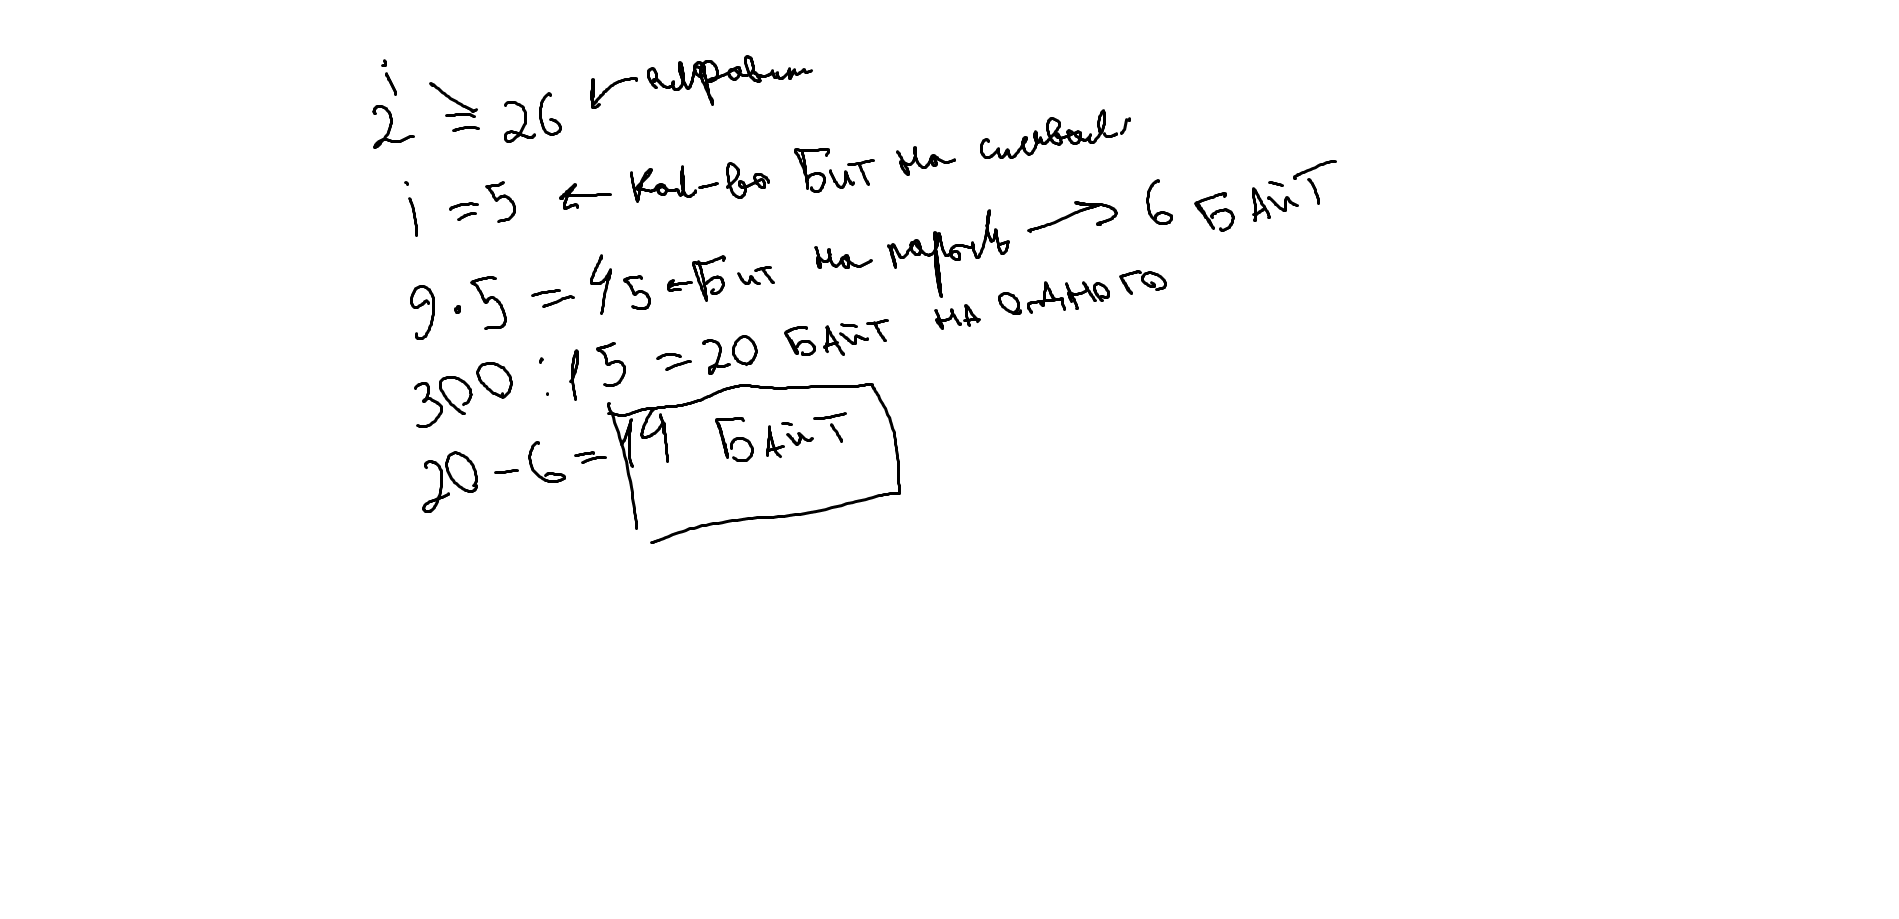 2^i ≥ 26 ← алфавит
i = 5 ← кол-во Бит на символ
9 · 5 = 45 ← Бит на пароль → 6 БАЙТ
300 : 15 = 20 БАЙТ НА ОДНОГО
20 - 6 = 14 БАЙТ